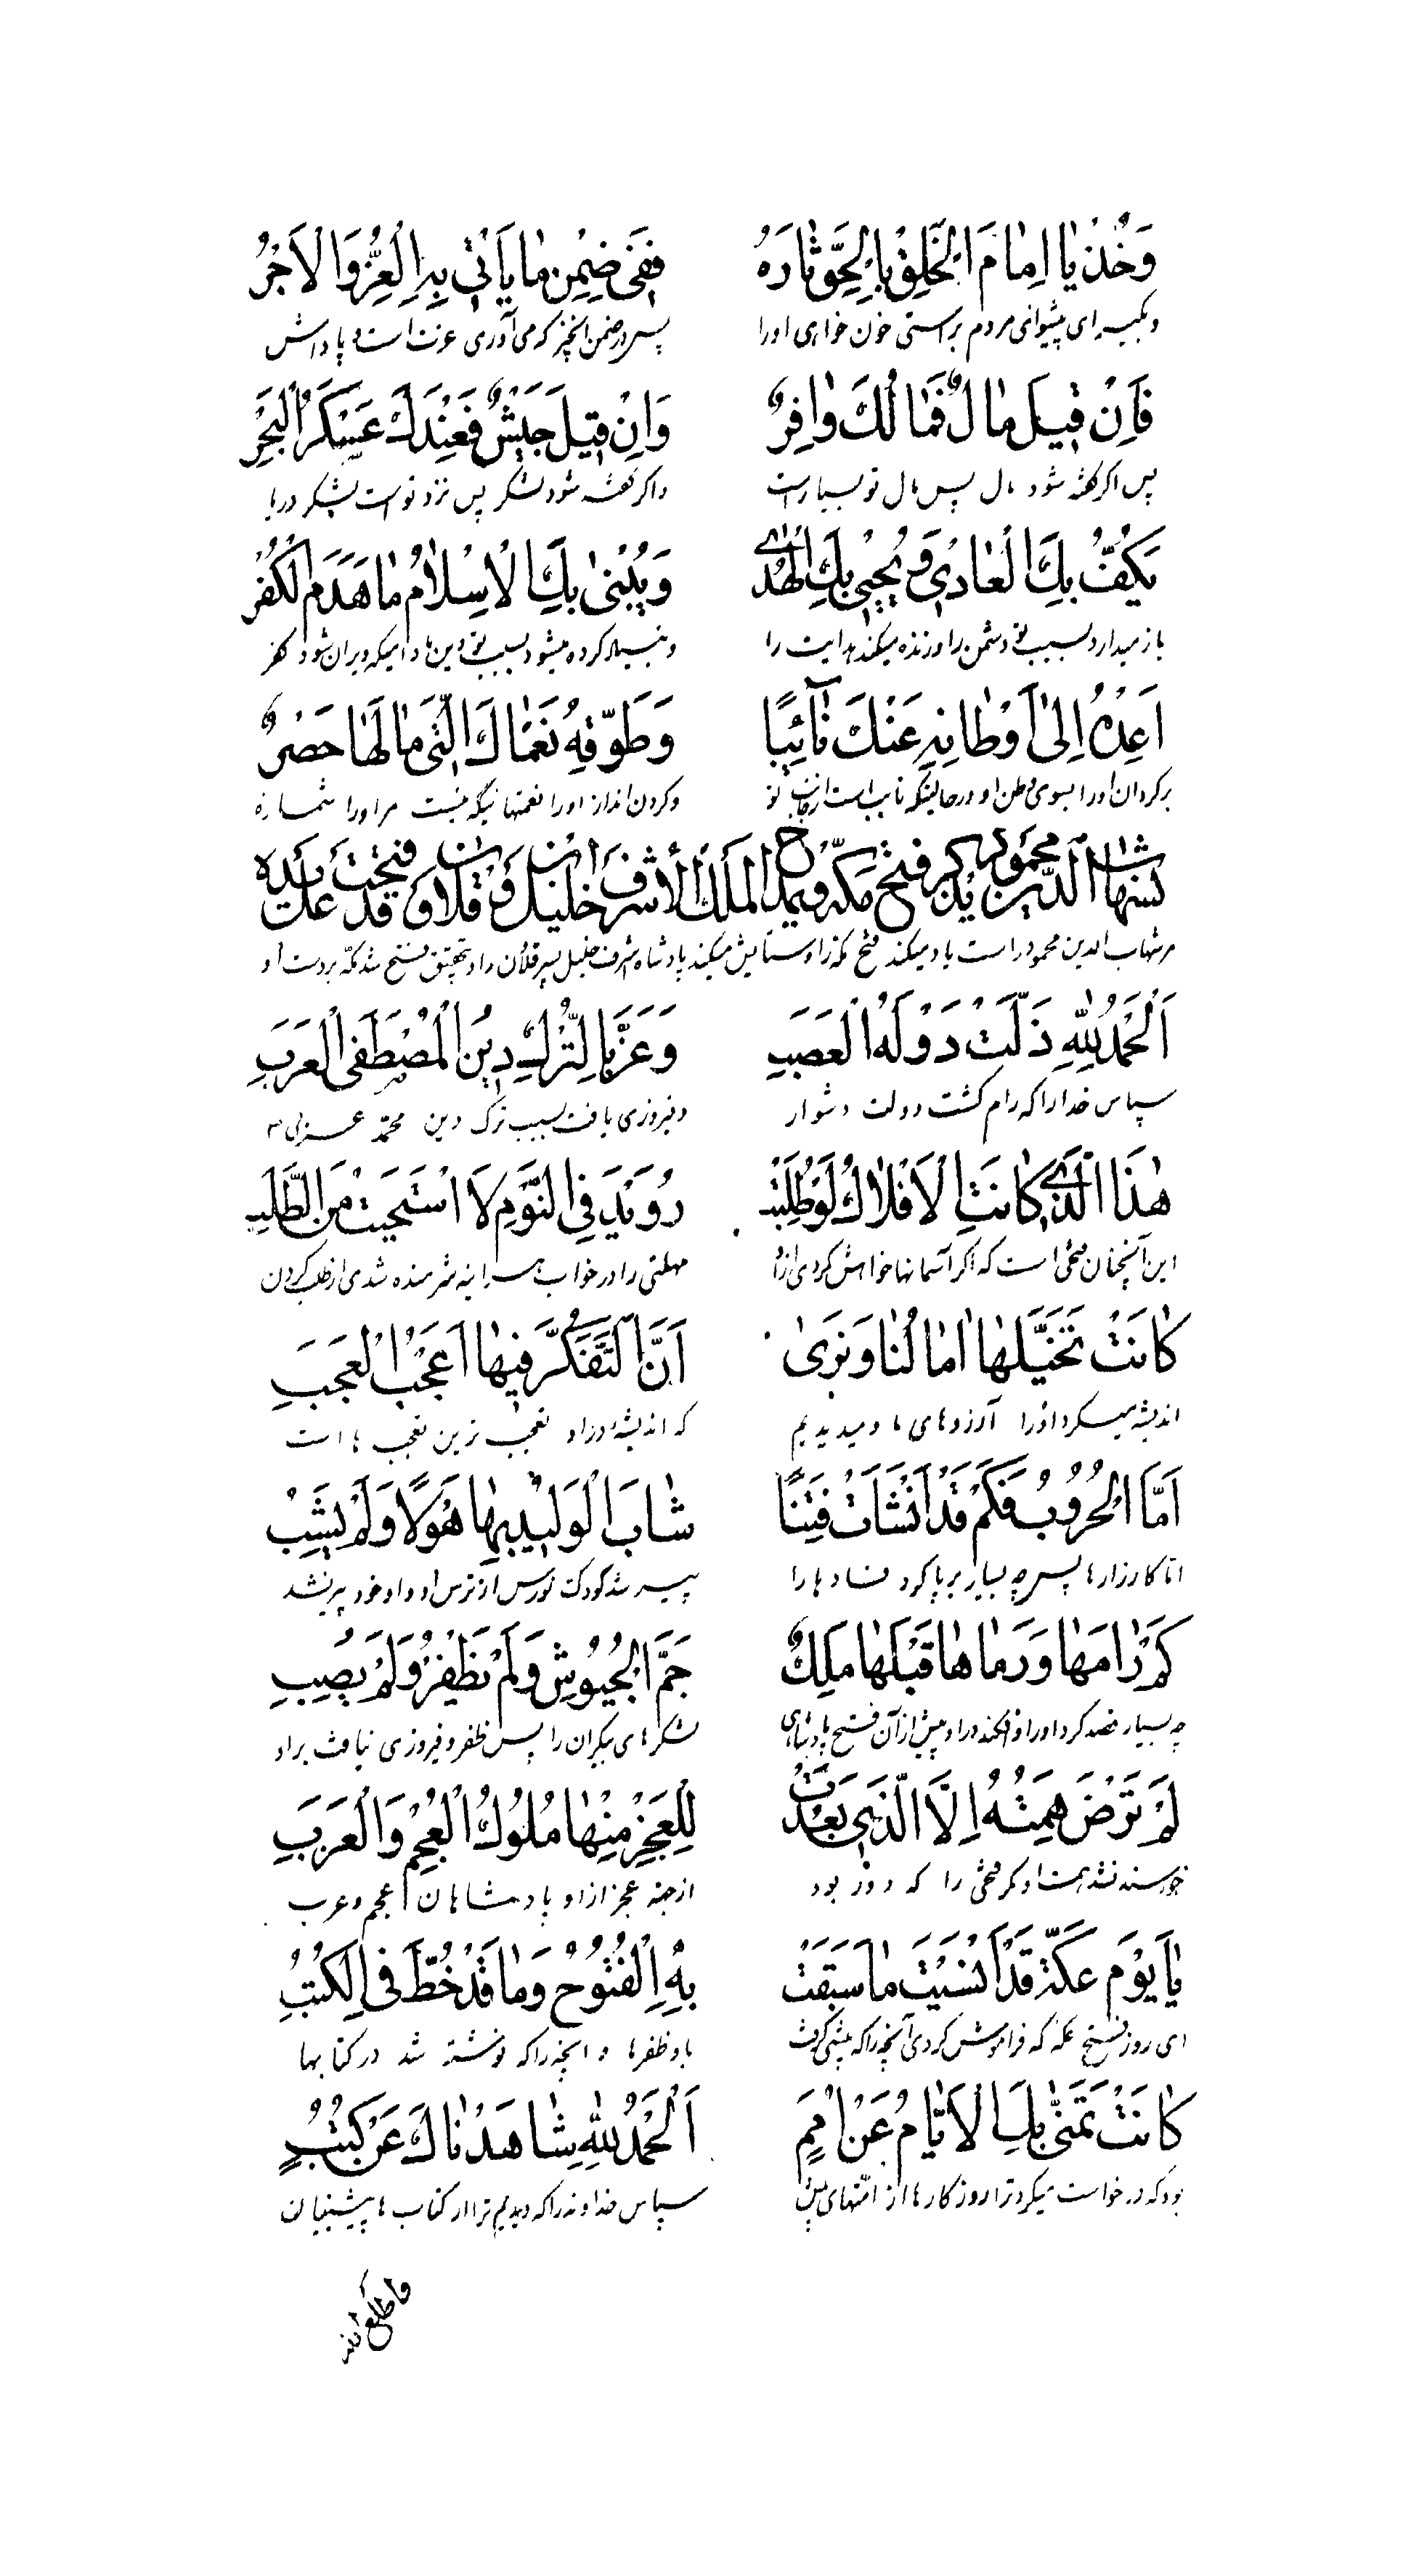 وَخُذْ يٰا اِمٰامَ الْخَلْقِ بِالْحَقِّ ثٰارَهُ فَفى ضِمْنِ مٰا يَاْتى بِهِ الْعِزُّ وَالْاَجْرُ
وبگیر ای پیشوای مردم براستی خون خواهی اورا پس در ضمن انچیز که می آوری عزت است و پاداش
فَاِنْ قيلَ مٰالٌ فَمٰالُكَ وٰافِرٌ وَاِنْ قيلَ جَيْشٌ فَعِنْدَكَ عَسْكَرُ الْبَحْرِ
پس اکر کفته شود مال پس مال تو بسیار است واکر کفته شود لشکر پس نزد تو است لشکر دریا
يَكُفُّ بِكَ الْعٰادى وَ يُحْيى بِكَ الْهُدٰى وَيُبْنىٰ بِكَ الْاِسْلٰامُ مٰا هَدَمَ الْكُفْرُ
باز میدارد بسبب تو دشمن را وزنده میکند هدایت را کرده میشود بسبب تو دین مادامیکه ویران شود کفر
اَعِدْهُ اِلىٰ اَوْطٰانِهِ عَنْكَ نٰآئِبًا وَطَوِّقْهُ نَعْمٰاكَ الَّتى مٰا لَهٰا حَصْرٌ
برکردان اورا بسوی وطن او درحالیکه نایب است ازجانب تو وکردن انداز اورا نعمتهائیکه نیست مر اورا شماره
لشهاب الدّين محمود يذكر فتح مكّة و يمدح الملك الأشرف خليل بن قلاون و قد فتحت على يده
مر شهاب الدین محمود راست یاد میکند فتح مکه را وستایش میکند پادشاه اشرف خلیل پسر قلاون را و بتحقیق فتح شد مکّه بر دست او
اَلْحَمْدُ لِلّٰهِ ذَلَّتْ دَوْلَهُ الْعَصَبِ وَعَزَّ بِالتُّرْكِ دينُ الْمُصْطَفَى الْعَرَبِ
سپاس خدارا که رام کشت دولت دشوار وفیروزی یافت بسبب ترک دین محمّد عربی
هٰذَا الَّذى كٰانَتِ الْاَفْلٰاكُ لَوْ طَلَبَتْ رُوَيْدَ فِى النَّوْمِ لَا اسْتَحْيَتْ مِنَ الطَّلَبِ
این آنچنان فتحی است که اکر آسمانها خواهش کردی ازرا مهلتی را در خواب هراینه شرمنده شدی از طلب کردن
كٰانَتْ تَخَيَّلَهٰا اٰمٰالُنٰا وَنَرىٰ اَنَّ التَّفَكُّرَ فيهٰا اَعْجَبُ الْعَجَبِ
اندیشه میکرد اورا آرزوهای ما ومیدیدیم که اندیشه در او تعجب ترین تعجب ها است
اَمَّا الْحُرُوبُ فَكَمْ قَدْ اَنْشَاَتْ فِتَنًا شٰابَ الْوَليدُ بِهٰا هَوْلًا وَلَمْ يَشِبْ
امّا کارزارها پس چه بسیار برپا کرد فسادها را پیر شد کودک نورس از ترس او واو خود پیر نشد
كَمْ رٰامَهٰا وَرَمٰاهٰا قَبْلَهٰا مَلِكٌ جَمَّ الْجُيُوشِ وَلَمْ يَظْفَرْ وَلَمْ يُصِبِ
چه بسیار قصد کرد اورا وافکند در او پیش از آن فتح پادشاهی لشکرهای بیکران را پس ظفر وفیروزی نیافت براو
لَمْ تَرْضَ هِمَّتُهُ اِلَّا الَّذى بَعُدَتْ لِلْعَجْزِ مِنْهٰا مُلُوكُ الْعُجْمِ وَالْعَرَبِ
خورسند نشد همت او مکر فتحی را که دور بود از جهة عجز از او پادشاهان عجم وعرب
يٰا يَوْمَ عَكَّةَ قَدْ اَنْسَيْتَ مٰا سَبَقَتْ بِهِ الْفُتُوحُ وَمٰا قَدْ خُطَّ فِى الْكُتُبِ
ای روز فتح عکه که فراموش کردی آنچه را که پیشی کرفت باو ظفرها وانچه را که نوشته شد در کتابها
كٰانَتْ تَمَنّٰى بِكَ الْاَيّٰامُ عَنْ اُمَمٍ اَلْحَمْدُ لِلّٰهِ شٰاهَدْنٰاكَ عَنْ كُتُبٍ
بود که درخواست میکرد ترا روزکارها از امّتهای پیش سپاس خداوند را که دیدیم ترا از کتاب های پیشینیان